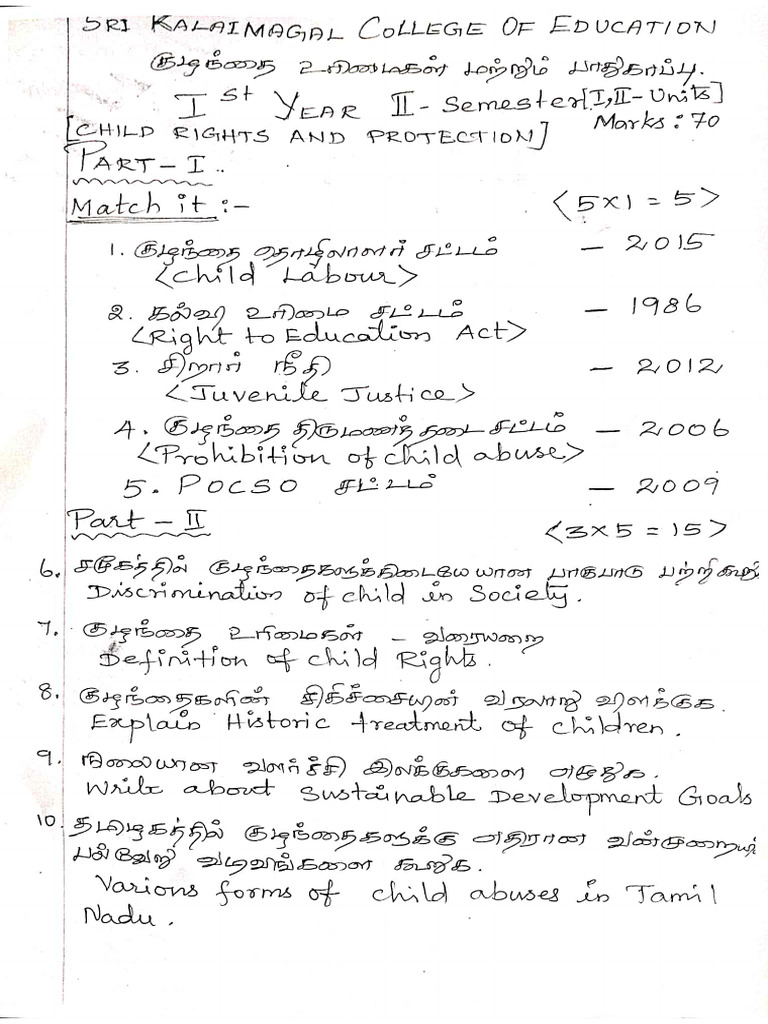 SRI KALAIMAGAL COLLEGE OF EDUCATION
குழந்தை உரிமைகள் மற்றும் பாதுகாப்பு.
Ist YEAR II - Semester [I, II - Units]
[CHILD RIGHTS AND PROTECTION] Marks : 70
PART - I .
Match it :- <5x1 = 5>
1. குழந்தை தொழிலாளர் சட்டம் - 2015
<Child Labour>
2. கல்வி உரிமை சட்டம் - 1986
<Right to Education Act>
3. சிறார் நீதி - 2012
<Juvenile Justice>
4. குழந்தை திருமணத்தடை சட்டம் - 2006
<Prohibition of child abuse>
5. POCSO சட்டம் - 2009
Part - II <3x5 = 15>
6. சமூகத்தில் குழந்தைகளுக்கிடையேயான பாகுபாடு பற்றி கூறு
Discrimination of child in Society.
7. குழந்தை உரிமைகள் - வரையறை
Definition of child Rights.
8. குழந்தைகளின் சிகிச்சையின் வரலாறு விளக்குக.
Explain Historic treatment of children.
9. நிலையான வளர்ச்சி இலக்குகளை எழுதுக.
Write about Sustainable Development Goals
10. தமிழகத்தில் குழந்தைகளுக்கு எதிரான வன்முறையின்
பல்வேறு வடிவங்களை கூறுக.
Various forms of child abuses in Tamil
Nadu.